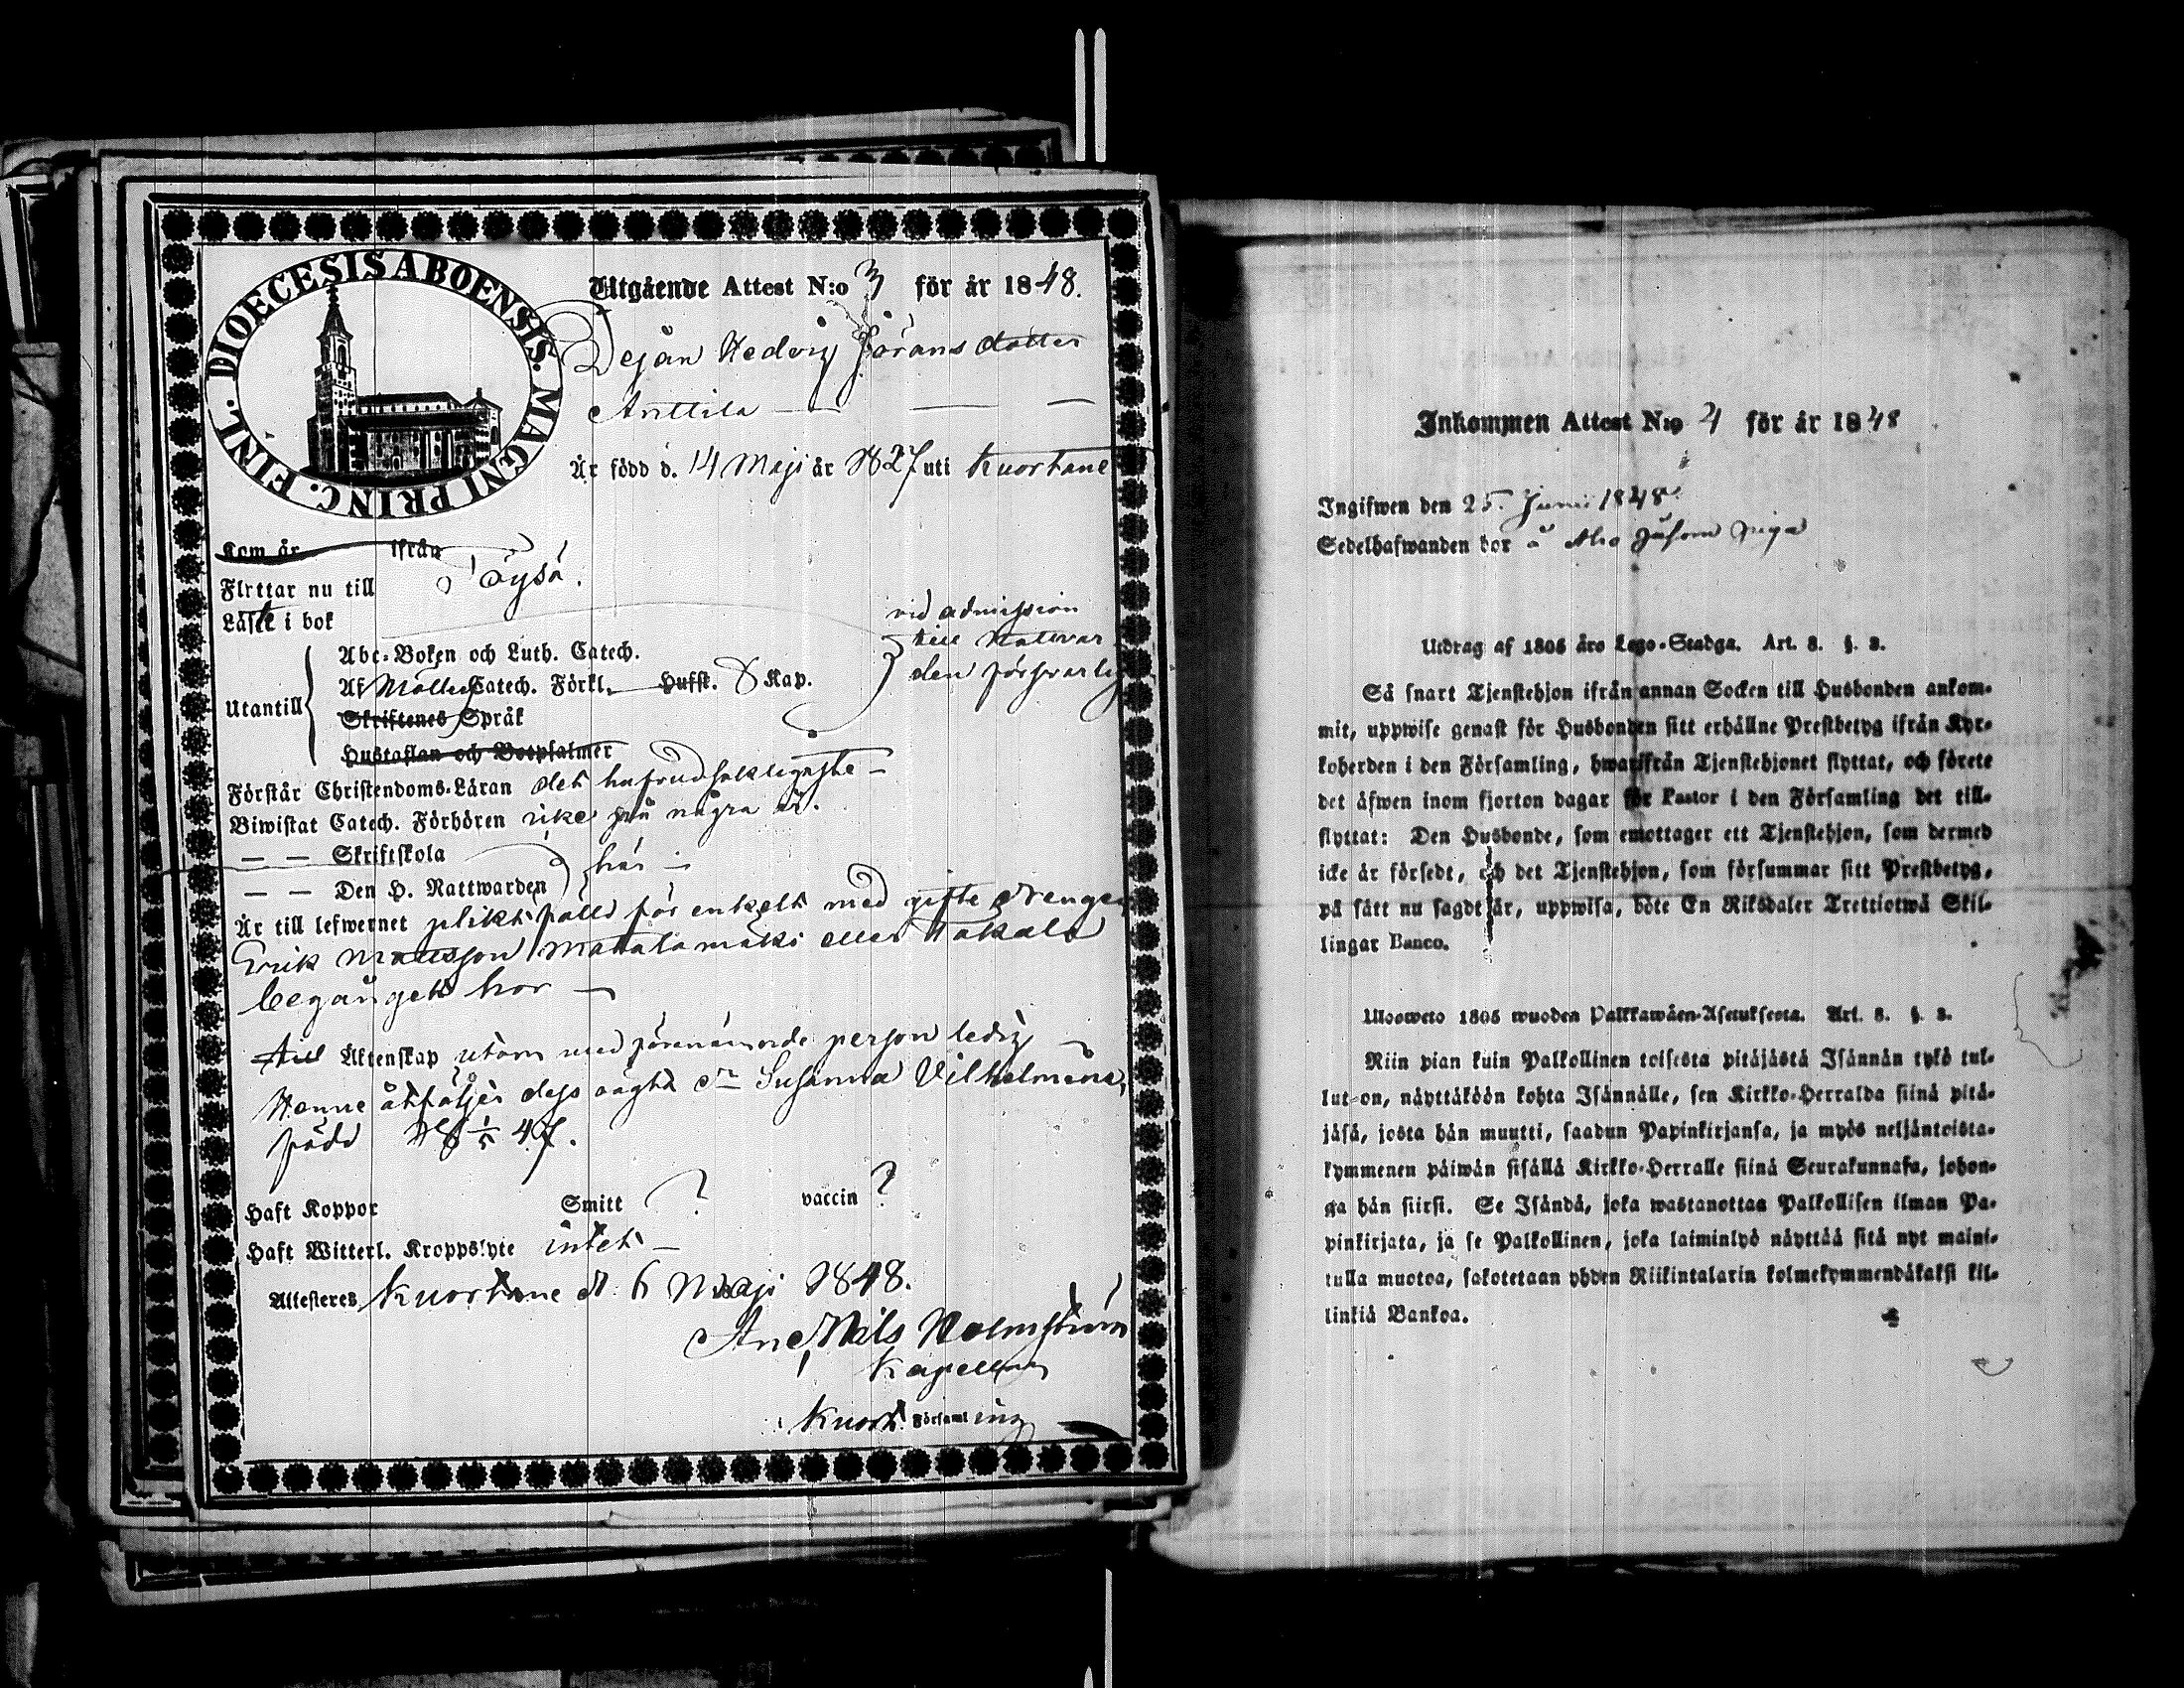 DIOECESIS ABOENSIS. MAGNI PRINC. FINL.
Utgående Attest N:o 3 för år 1848.
Pejan Hedvig Jörans dotter
Anttila — — —
Är född d. 14 Maji år 1827 uti Kuortane
Kom år ifrån
Flyttar nu till Töysä.
Läste i bok
Utantill
Abc-Boken och Luth. Catech.
Af Möllers Catech. Förkl. Hufst. 8 Kap.
Skriftenes Språk
Hustaflan och Botpsalmer
vid admission
till Nattvar
den försvarlig
Förstår Christendoms-Läran det hufvudsakligaste —
Biwistat Catech. Förhören icke på några år.
— — Skriftskola
— — Den H. Nattwarden
här —
Är till lefwernet pliktfälld för enkelt med gifte drengen
Erik Mattsson Matalamäki eller Takala
begånget hor —
till Äktenskap utom med förenämnde person ledig —
Henne åtföljer dess oägta dr Susanna Vilhelmina,
född 18 1/5 47.
Haft Koppor Smitt ? vaccin ?
Haft Witterl. Kroppslyte intet —
Attesteras Kuortane d. 6 Maji 1848.
And. Nils Holmström
Kapellan
Kuort. Församling
Inkommen Attest N:o 4 för år 1848
Ingifwen den 25. Juni 1848
Sedelhafwanden bor å Aho piga
Utdrag af 1805 års Lego-Stadga. Art. 8. §. 3.
Så snart Tjenstehjon ifrån annan Socken till Husbonden ankom-
mit, uppwise genast för Husbonden sitt erhållne Prestbetyg ifrån Kyr-
koherden i den Församling, hwarifrån Tjenstehjonet flyttat, och förete
det äfwen inom fjorton dagar för Pastor i den Församling det till-
flyttat: Den Husbonde, som emottager ett Tjenstehjon, som dermed
icke är försedt, och det Tjenstehjon, som försummar sitt Prestbetyg,
på sätt nu sagdt är, uppwisa, böte En Riksdaler Trettiotwå Skil-
lingar Banco.
Ulosweto 1805 wuoden Palkkawäen-Asetuksesta. Art. 8. §. 3.
Niin pian kuin Palkollinen toisesta pitäjästä Isännän tykö tul-
lut on, näyttäköön kohta Isännälle, sen Kirkko-Herralda siinä pitä-
jäsä, josta hän muutti, saadun Papinkirjansa, ja myös neljäntoista-
kymmenen päiwän sisällä Kirkko-Herralle siinä Seurakunnasa, johon-
ga hän siirsi. Se Isändä, joka wastanottaa Palkollisen ilman Pa-
pinkirjata, ja se Palkollinen, joka laiminlyö näyttää sitä nyt maini-
tulla muotoa, sakotetaan yhden Riikintalarin kolmekymmendäkaksi kil-
linkiä Bankoa.